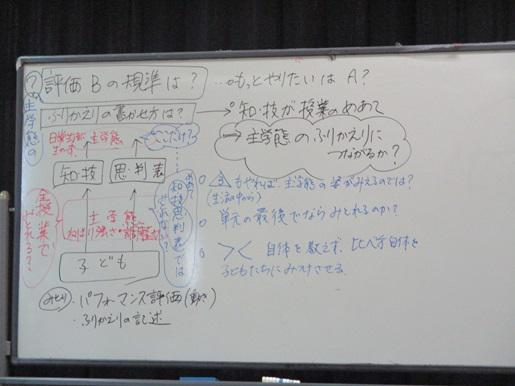 主学態の？
評価Bの規準は？ …もっとやりたいはA？
ふりかえりの書かせ方は？ → 知・技が授業のめあて
→ 主学態のふりかえりに
つながるか？
日常生活 主学態
ここだけ？
知技 思・判・表
全授業でとれる？
主学態
ねばり強さ
子ども
めあて 知技思判表では
もやれば、主学態の姿がみえるのでは？
(生活の中から)
○ 単元の最後でならみとれるのか？
○ ＞＜ 自体を教えず、比べ方自体を
子どもたちにみつけさせる。
みとり ・パフォーマンス評価(動き)
・ふりかえりの記述